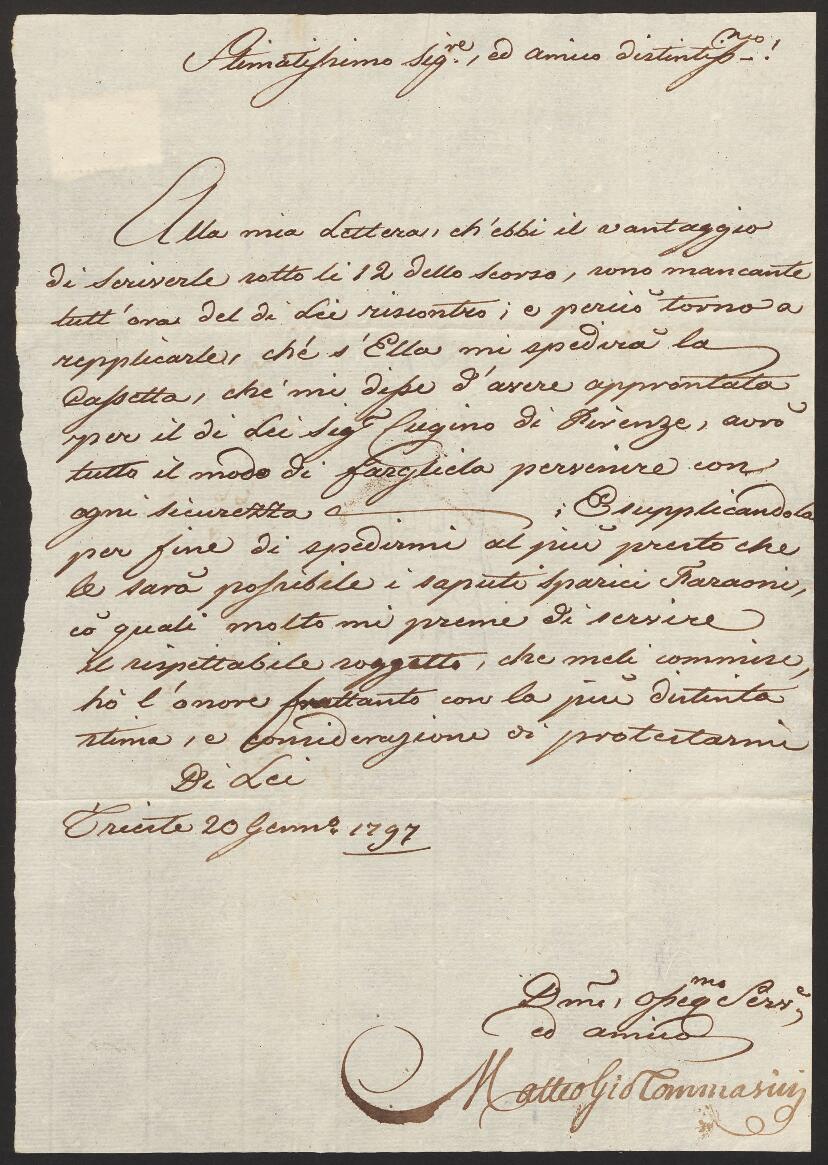 Stimatissimo Sigre, ed amico distintissmo!
Alla mia Lettera, ch'ebbi il vantaggio
di scriverle sotto li 12 dello scorso, sono mancante
tutt'ora del di Lei riscontro; e perciò torno a
repplicarle, ché s'Ella mi spedirà la
Cassetta, ché mi disse d'avere approntata
per il di Lei Sigr Cugino di Firenze, avrò
tutto il modo di fargliela pervenire con
ogni sicurezza ; E supplicandola
per fine di spedirmi al più presto che
le sarà possibile i saputi Sparici Faraoni,
co' quali molto mi preme di servire
il rispettabile soggetto, che meli commise,
hò l'onore frattanto con la più distinta
stima, e considerazione di protestarmi
Di Lei
Trieste 20 Gennro 1797
Dmo, osseqmo Serve
ed amico
Matteo Gio Tommasini